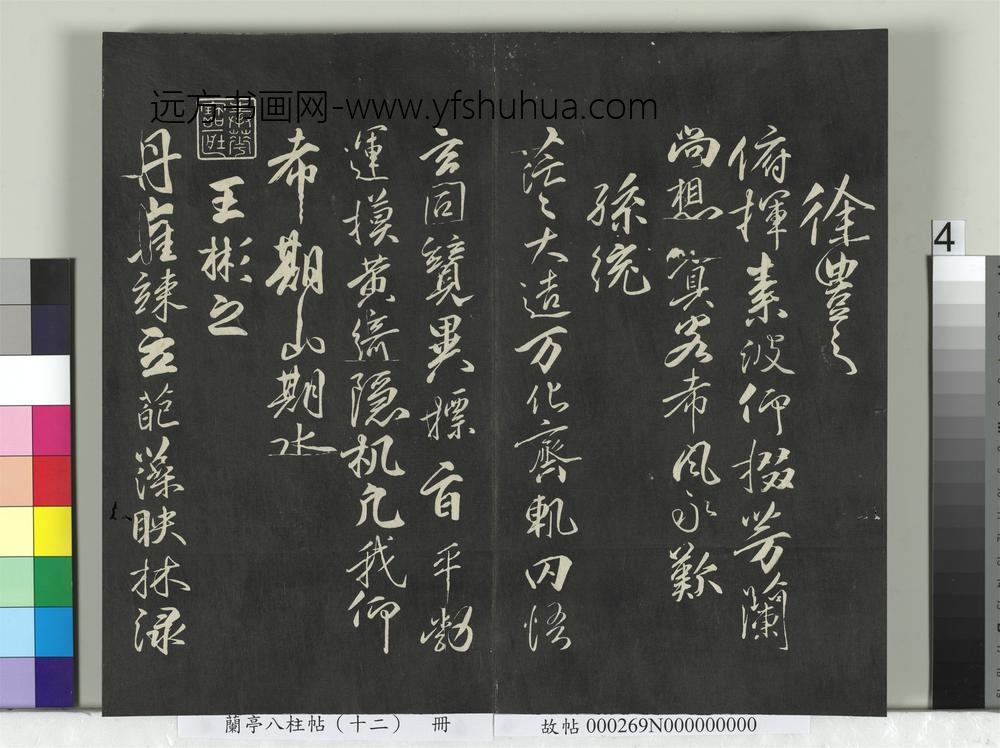 远方书画网-www.yfshuhua.com
徐豐之
俯揮素波仰掇芳蘭
尚想客希風永歎
孫統
茫〻大造万化齊軌罔悟
玄同競異標旨平勃
運模黃綺隱机凡我仰
希期山期水
王彬之
丹崖竦立葩藻映林渌
4
蘭亭八柱帖（十二） 冊
故帖 000269N000000000